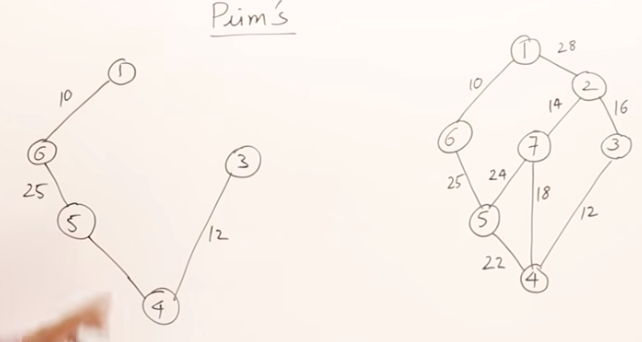 Prim's
1
10
6
25
5
4
12
3
1
28
2
10
14
16
6
7
3
25
24
18
12
5
22
4